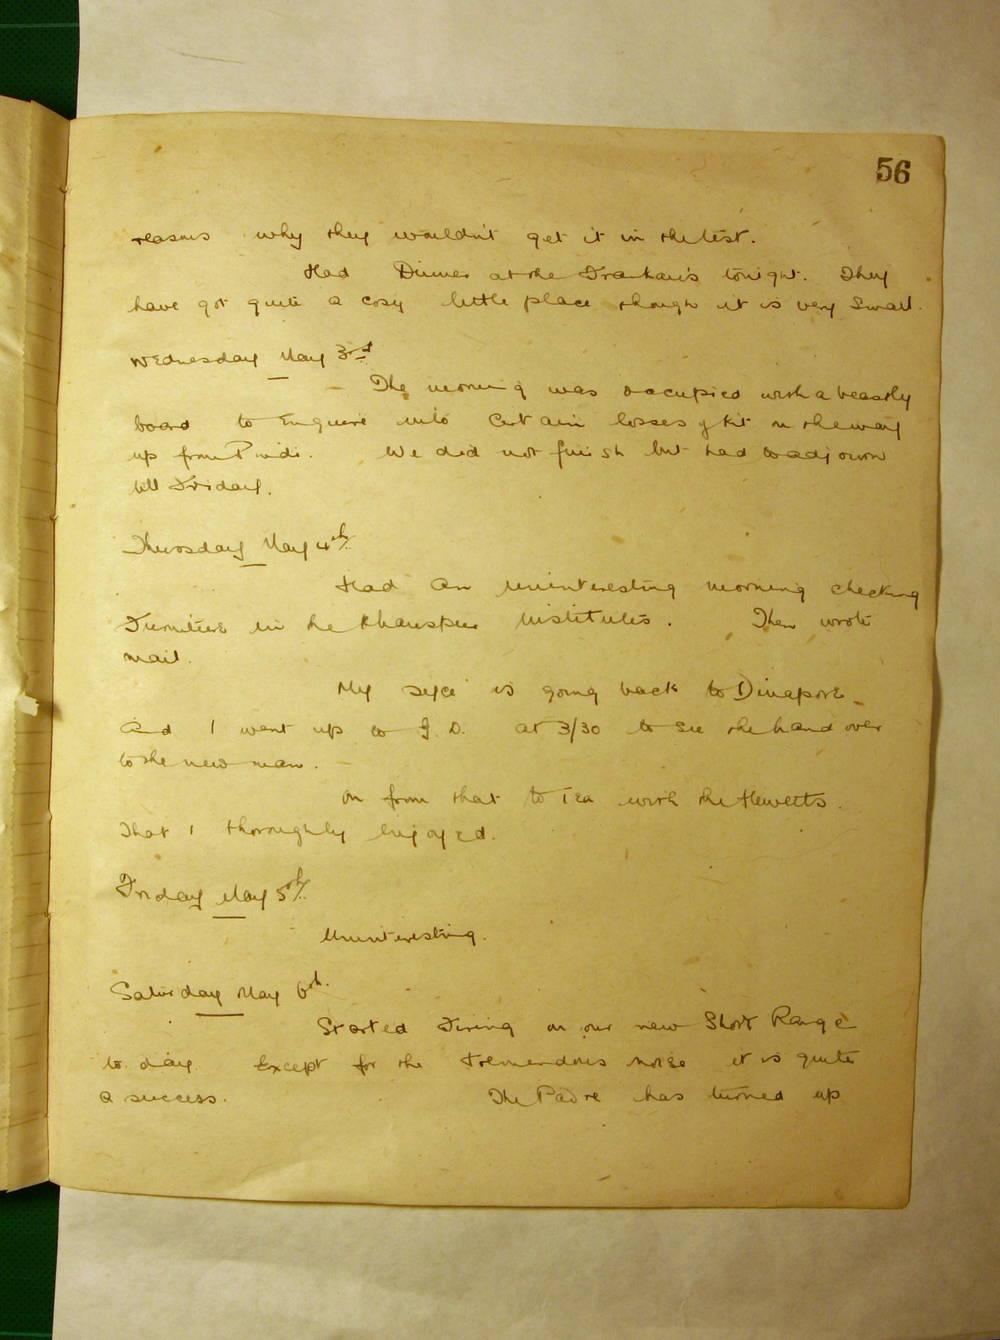 56
reasons why they wouldn't get it in the test.
Had Dinner at the tonight. They
have got quite a cosy little place though it is very small.
Wednesday May 3rd
The morning was occupied with a beastly
board to enquire into certain losses of kit on the way
up from Pindi. We did not finish but had to adjourn
till Friday.
Thursday May 4th
Had an uninteresting morning checking
Furniture in the Khanspur Institutes. Then wrote
mail.
My syce is going back to Dinapore
and I went up to G.D. at 3/30 to see the hand over
to the new man.
On from that to Tea with the Hewetts.
That I thoroughly enjoyed.
Friday May 5th
Uninteresting.
Saturday May 6th.
Started Firing on our new Short Range
to day. Except for the tremendous noise it is quite
a success. The Padre has turned up